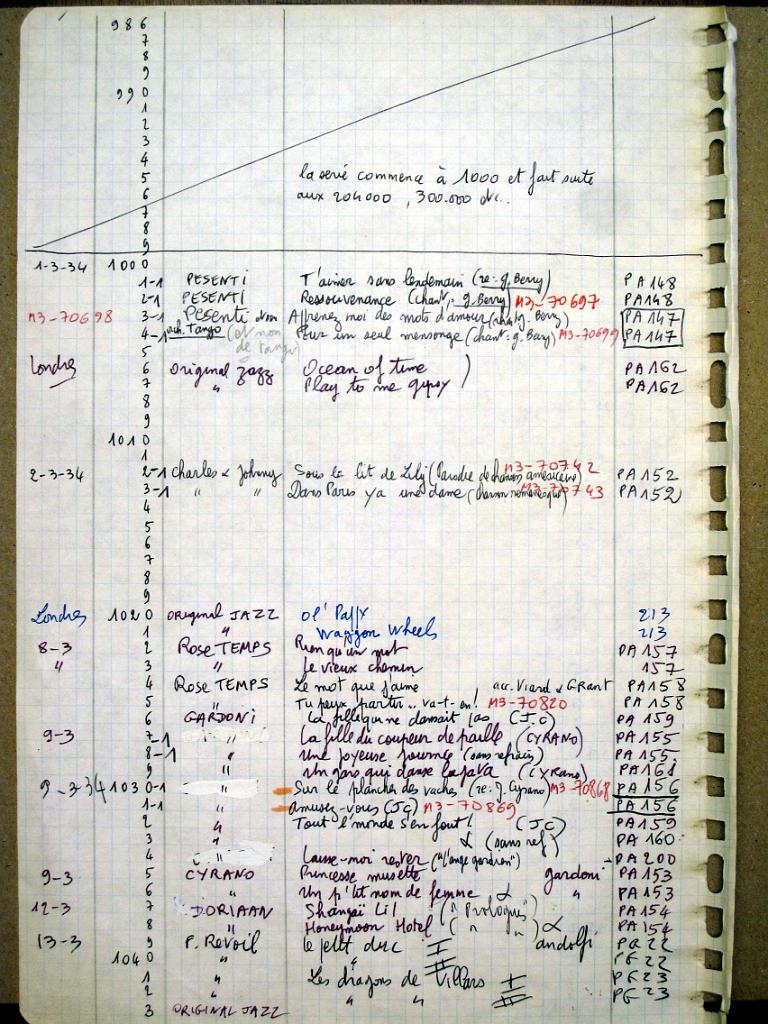 986
7
8
9
990
1
2
3
4
5 la série commence à 1000 et fait suite
6 aux 204000, 300.000 etc..
7
8
9
1-3-34 1000
1-1 PESENTI T'aimer sans lendemain (re: g. Berry) PA148
2-1 PESENTI Ressouvenance (chant: g. Berry) M3-70697 PA148
M3-70698 3-1 Pesenti Apprenez moi des mots d'amour (chant g. Berry) PA147
4-1 orch. Tango (et non de tango) Pour un seul mensonge (chant: g. Berry) M3-70699 PA147
5
Londres 6 Original Jazz Ocean of time PA162
7 " Play to me gipsy PA162
8
9
1010
1
2-3-34 2-1 Charles & Johnny Sous le lit de Lily (Parodie de chanson américaine) M3-70742 PA152
3-1 " " Dans Paris y a une dame M3-70743 PA152
4
5
6
7
8
9
Londres 1020 ORIGINAL JAZZ Ol' Pappy 213
1 " Waggon Wheels 213
8-3 2 Rose TEMPS Rien qu'un mot PA157
" 3 " Le vieux chemin 157
4 Rose TEMPS Le mot que j'aime acc. Viard & GRANT PA158
5 " Tu peux partir.. va-t-en! M3-70820 PA158
6 GARDONI La fille qui ne dansait pas (J.C) PA159
9-3 7-1 La fille du coupeur de paille (CYRANO) PA155
8-1 " Une joyeuse journée (sans refrain) PA155
9 " Un gars qui danse la java (CYRANO) PA161
9-3-34 1030-1 " Sur le plancher des vaches (re: J. Cyrano) M3-70868 PA156
1-1 " Amusez-vous (JC) M3-70869 PA156
2 " Tout l'monde s'en fout! (JC) PA159
3 " & (sans ref) PA160
4 " Laisse-moi rester ("l'ange gardien") PA200
9-3 5 CYRANO Princesse musette gardoni PA153
6 " Un p'tit nom de femme & " PA153
12-3 7 DORIAAN Shangaï Lil ("Prologues") PA154
8 " Honeymoon Hotel ( " " ) & PA154
13-3 9 P. Revoil le petit duc I andolfi PE22
1040 " " II PE22
1 Les dragons de Villars I PE23
2 " " II PE23
3 ORIGINAL JAZZ